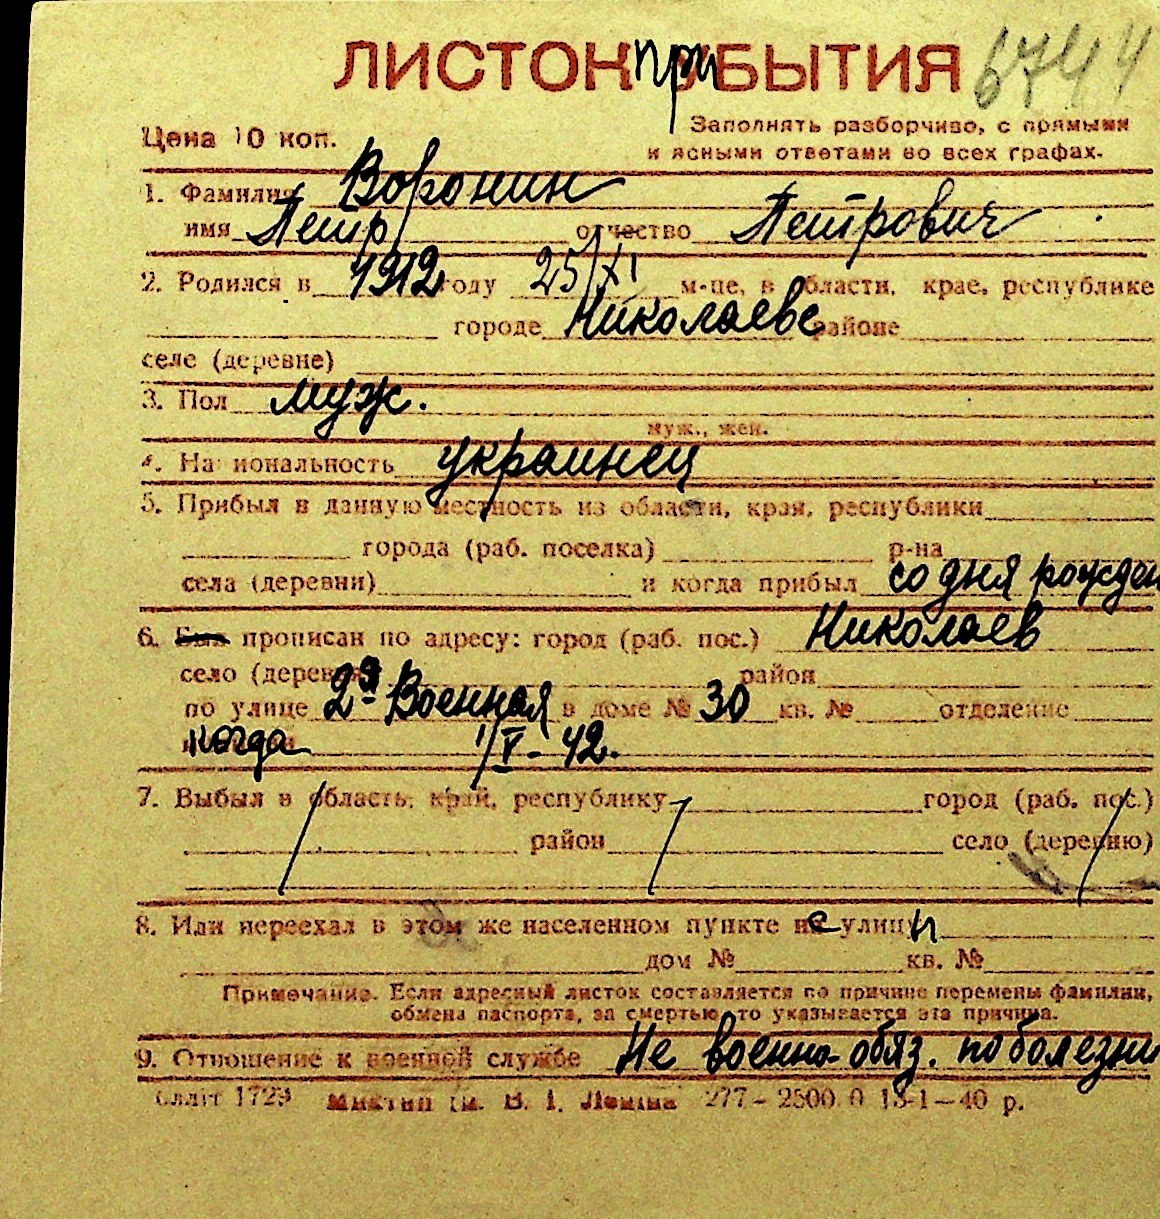 ЛИСТОК ПРИБЫТИЯ 6744
Цена 10 коп.
Заполнять разборчиво, с прямыми
и ясными ответами во всех графах.
1. Фамилия Воронин
имя Петр отчество Петрович
2. Родился в 1912 году 25/XI м-це, в области, крае, республике
городе Николаеве районе
селе (деревне)
3. Пол муж.
муж., жен.
4. Национальность украинец
5. Прибыл в данную местность из области, края, республики
города (раб. поселка) р-на
села (деревни) и когда прибыл со дня рожден
6. Был прописан по адресу: город (раб. пос.) Николаев
село (деревня) район
по улице 2я Военная в доме № 30 кв. № отделение
когда 1/V-42.
7. Выбыл в область, край, республику город (раб. пос.)
район село (деревню)
8. Или переехал в этом же населенном пункте с улицы
дом № кв. №
Примечание. Если адресный листок составляется по причине перемены фамилии,
обмена паспорта, за смертью, то указывается эта причина.
9. Отношение к военной службе Не военно-обяз. по болезни
1729 им. В. И. Ленина 277-2500.0 18-1-40 р.